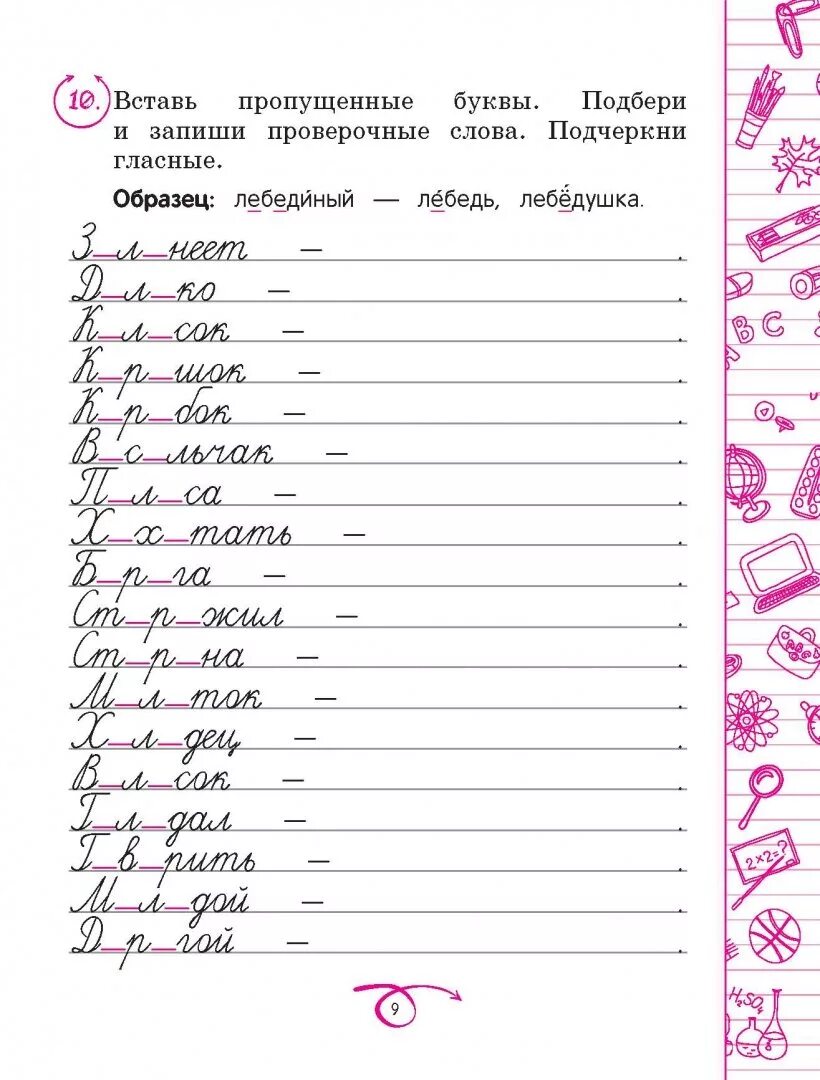 10. Вставь пропущенные буквы. Подбери
и запиши проверочные слова. Подчеркни
гласные.
Образец: лебеди́ный — ле́бедь, лебёдушка.
З_л_неет — .
Д_л_ко — .
К_л_сок — .
К_р_шок — .
К_р_бок — .
В_с_льчак — .
П_л_са — .
Х_х_тать — .
Б_р_га — .
Ст_р_жил — .
Ст_р_на — .
М_л_ток — .
Х_л_дец — .
В_л_сок — .
Г_л_дал — .
Г_в_рить — .
М_л_дой — .
Д_р_гой — .
9
B C
A
2×2=?
H₂SO₄